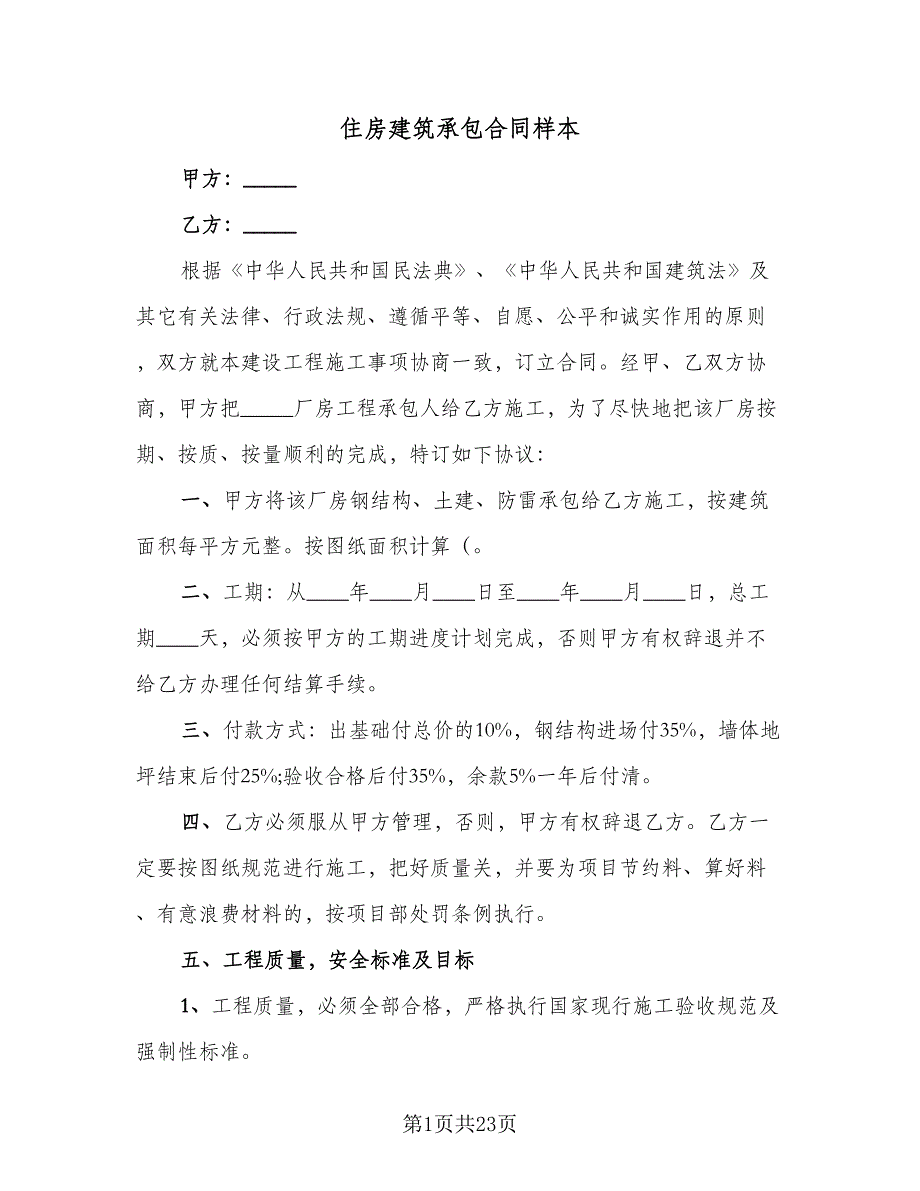 住房建筑承包合同样本
甲方：_____
乙方：_____
根据《中华人民共和国民法典》、《中华人民共和国建筑法》及
其它有关法律、行政法规、遵循平等、自愿、公平和诚实作用的原则
，双方就本建设工程施工事项协商一致，订立合同。经甲、乙双方协
商，甲方把_____厂房工程承包人给乙方施工，为了尽快地把该厂房按
期、按质、按量顺利的完成，特订如下协议：
一、甲方将该厂房钢结构、土建、防雷承包给乙方施工，按建筑
面积每平方元整。按图纸面积计算（。
二、工期：从____年____月____日至____年____月____日，总工
期____天，必须按甲方的工期进度计划完成，否则甲方有权辞退并不
给乙方办理任何结算手续。
三、付款方式：出基础付总价的10%，钢结构进场付35%，墙体地
坪结束后付25%;验收合格后付35%，余款5%一年后付清。
四、乙方必须服从甲方管理，否则，甲方有权辞退乙方。乙方一
定要按图纸规范进行施工，把好质量关，并要为项目节约料、算好料
、有意浪费材料的，按项目部处罚条例执行。
五、工程质量，安全标准及目标
1、工程质量，必须全部合格，严格执行国家现行施工验收规范及
强制性标准。
第1页共23页